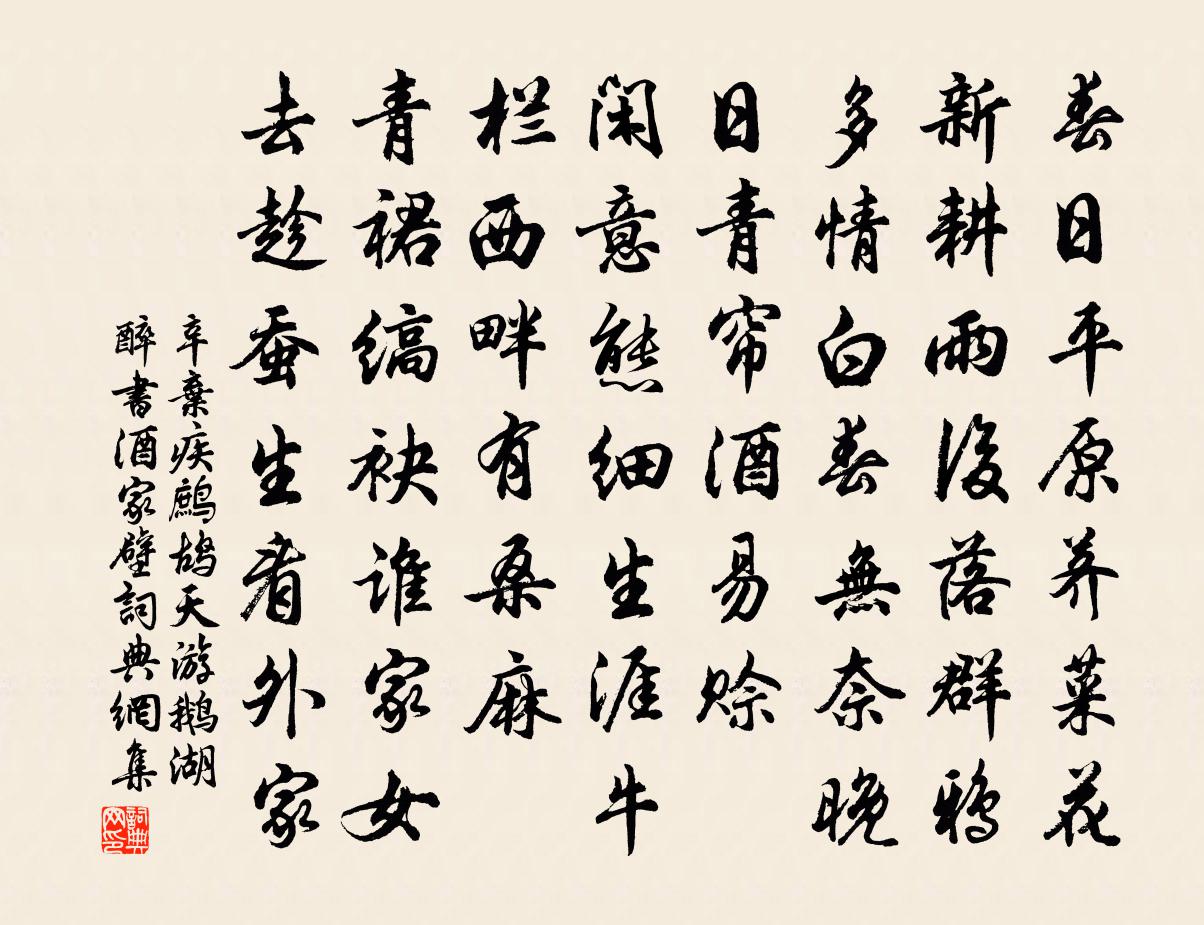 春日平原荠菜花
新耕雨後落群鸦
多情白春無奈晚
日青帘酒易赊
闲意態细生涯牛
栏西畔有桑麻
青裙缟袂谁家女
去趁蚕生看外家
辛棄疾鹧鸪天游鹅湖
醉書酒家壁詞典網集
詞典网印